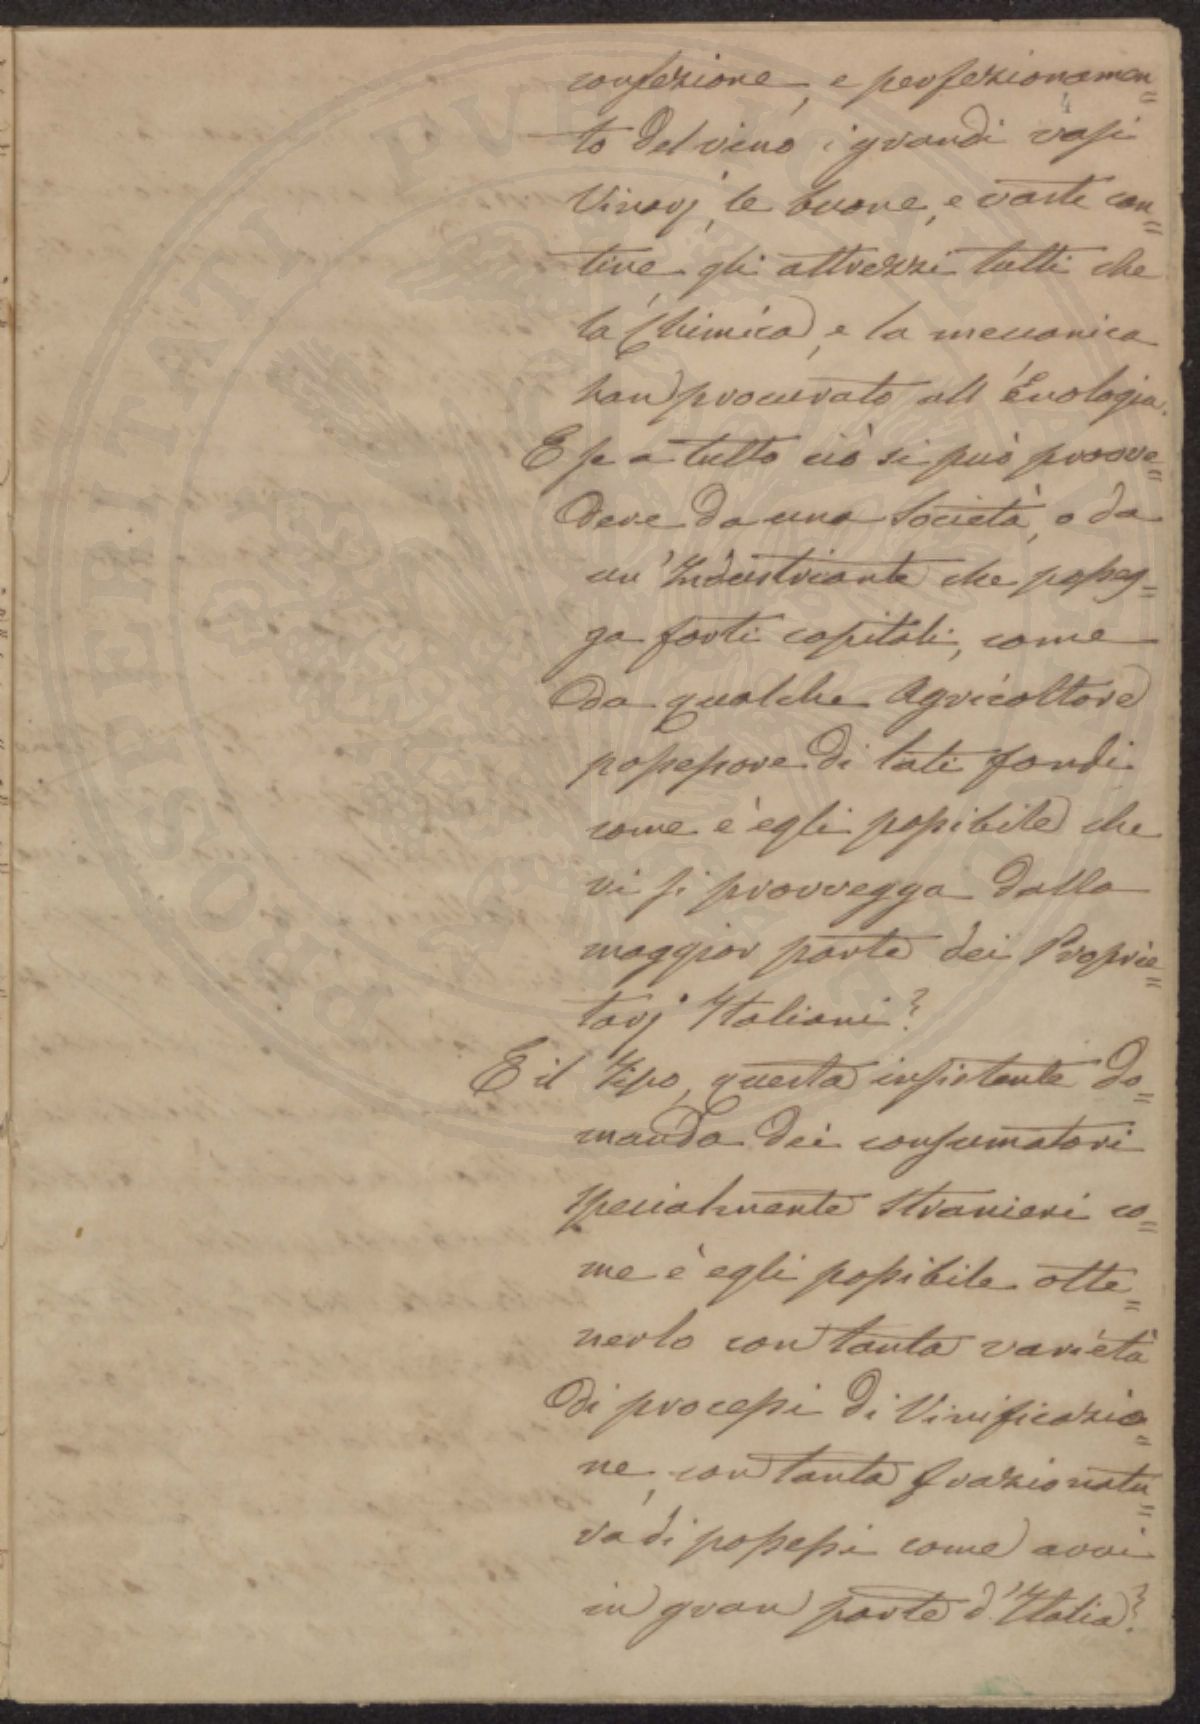 confezione, e perfezionamen=
to del vino i grandi vasi
Vinarj, le buone, e vaste can=
tine gli attrezzi tutti che
la Chimica, e la meccanica
han procurato all'Enologia.
E se a tutto ciò si può provve=
dere da una Società, o da
un'Industriante che posseg=
ga forti capitali, come
da qualche Agricoltore
possessore di lati fondi
come è egli possibile che
vi si provvegga dalla
maggior parte dei Proprie=
tarj Italiani?
E il Tipo, questa insistente do=
manda dei consumatori
specialmente stranieri co=
me è egli possibile otte=
nerlo con tanta varietà
di processi di Vinificazio=
ne, con tanta frazionatu=
ra di possessi come avvi
in gran parte d'Italia?
PROSPERITATI PVBLICAE